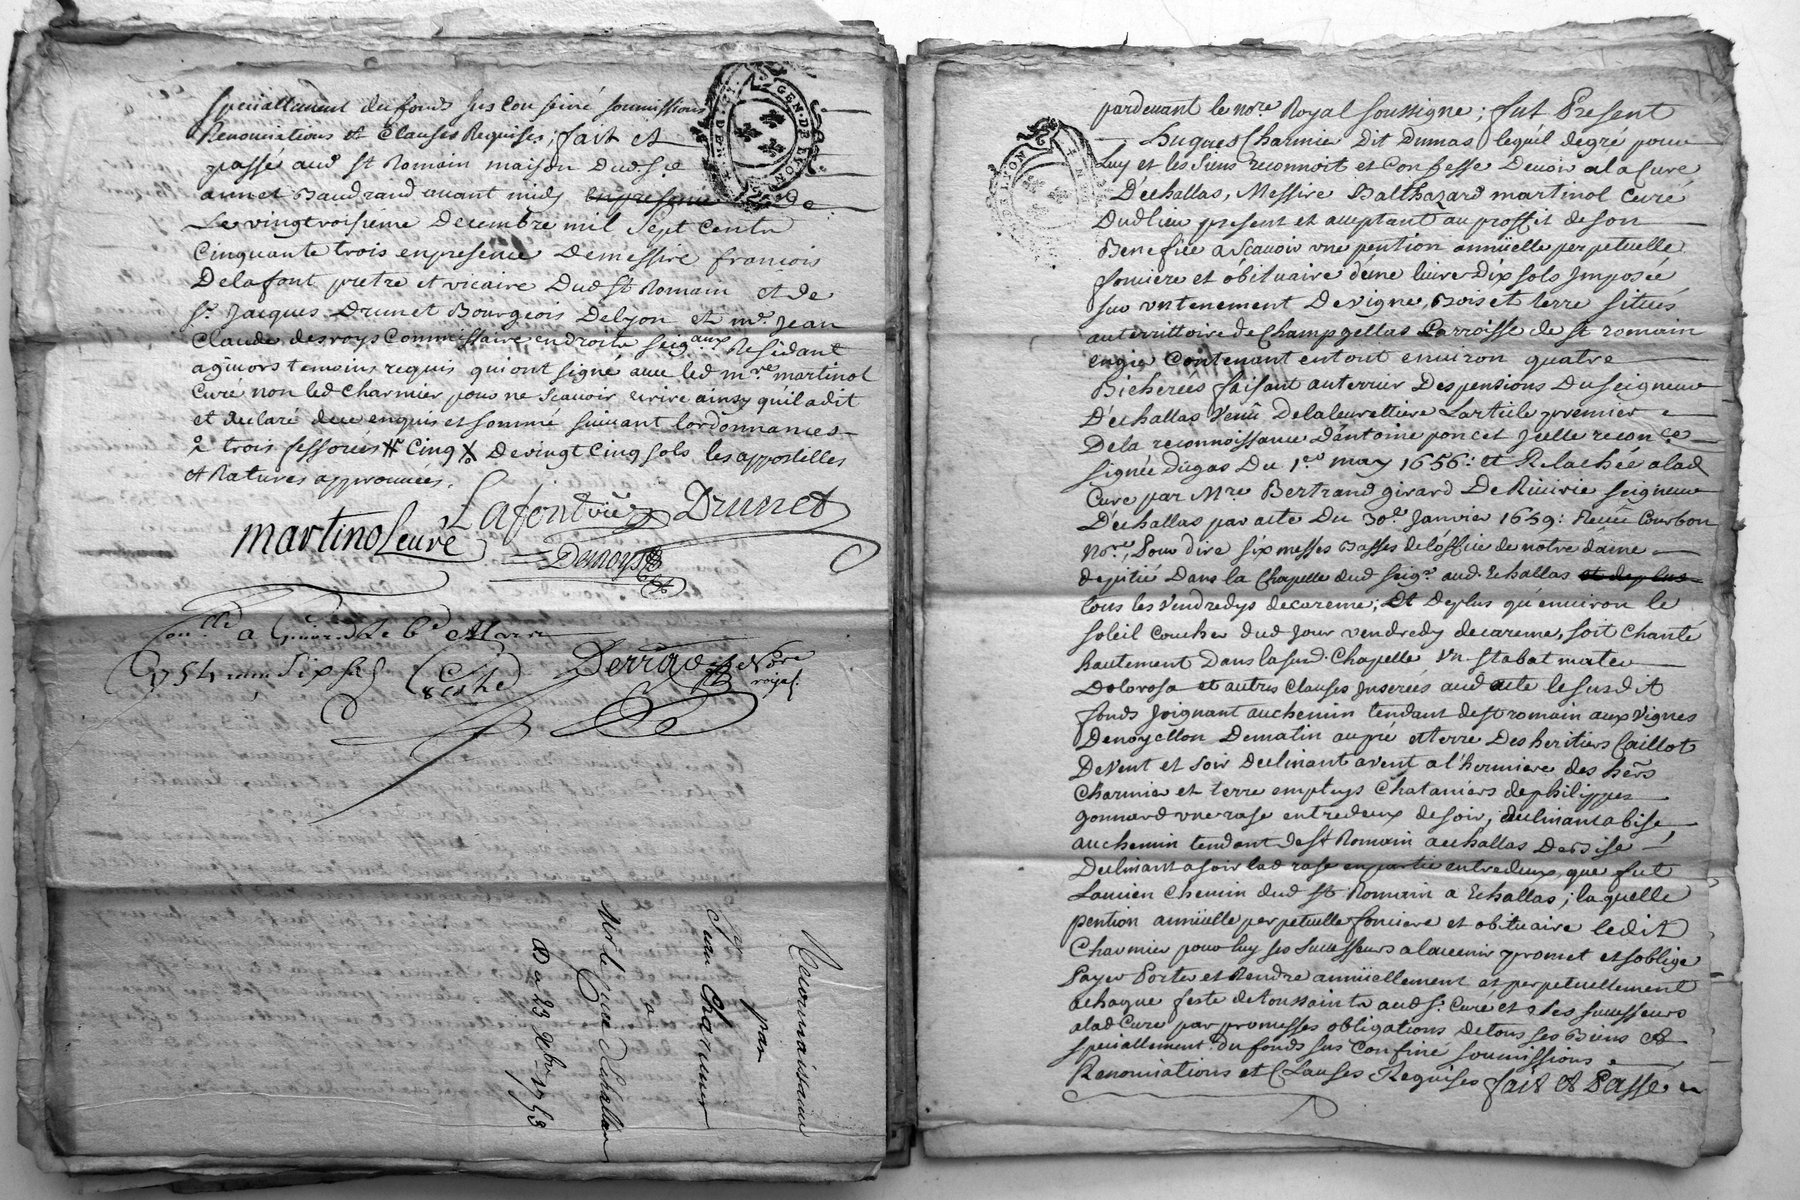 Speciallement du fonds sus confiné soumissions
Renonciations et Clauses Requises; fait et
passé aud st Romain maison dud. sr
annet Baudrand avant midy de
Le vingtroisieme Decembre mil sept cents
Cinquante trois enpresence demessire francois
Delafont pretre et vicaire Dud st Romain et de
sr. Jacques Drunet Bourgeois Delyon et mr. Jean
Claude desroys Commissaire endroits seigaux Residant
agivors temoins requis quiont signé avec led mre martinol
Curé non led Charmier pour ne scavoir ecrire ainsy quil a dit
et declaré deue enquis et sommé suivant lordonnances
2 trois fessorees # Cinq X Devingt Cinq sols les appostilles
et Ratures approuvées.
Lafont vic Drunet
martinol curé
Desroys
a Givors Le 6e Mars
1754 six s
Derrac Nore
royal
Reconnoissance
par
Jean Charmier
a
Mr le Curé dechallas
Du 23 Xbre 1753
GEN. DE LYON
pardevant le nore Royal soussigne; fut Present
Hugues Charmie Dit Dumas lequil degré pour
Luy et les Siens reconnoit et Confesse Devoir a la Cure
Dechallas, Messire Balthazard martinol Curé
Dudlieu present et acceptant au proffit de son
Benefice a scavoir une pention annüelle perpetuelle
fonciere et obituaire d'une livre dix sols Jmposée
sur untenement Devigne, Bois et terre situés
auterrittoire de Champgellas Parroisse de st romain
engie Contenant entout environ quatre
Bicherées faisant auterrier Despensions Duseigneur
D'echallas Larticle premier
Dela reconnoissance D'antoine poncet Jcelle reconce
signée dugas Du 1er may 1656: et Relachée alad
Cure par Mre Bertrand girard De Riuirie seigneur
D'echallas par acte Du 30e Janvier 1659: Courbon
Nore, Pour dire six messes Basses deloffice de notre dame
depitié Dans la Chapelle dud seigr aud. Echallas et deplus
tous les Vendredys decareme; Et Deplus qu'environ le
soleil Coucher dud Jour vendredy decareme, soit Chanté
hautement Dans lasusd. Chapelle Un stabat mater
Dolorosa et autres Clauses Jnserées aud acte lesusdit
fonds Joignant auchemin tendant dest romain aux vignes
Denoyellon Dematin aupré etterre Des heritiers Caillot
Devent et soir declinant avent a l'hermiere des hers
Charmier et terre employs Chataniers dephilippes
gonnard une rase entredeux desoir, declinantabise,
auchemin tendant dest Romain aechallas Debise
Declinant asoir lad rase enpartie entredeux, que fut
Lancien Chemin dud st Romain a Echallas; laquelle
pention annüelle perpetuelle fonciere et obituaire ledit
Charmier pour luy ses successeurs alavenir promet et soblige
Payer Porter et Rendre annüellement et perpetuellement
achaque feste detoussaints aud sr. Curé et ses successeurs
alad Cure par promesses obligations detous ses Biens et
speciallement. du fonds sus Confiné soumissions
Renonciations et Clauses Requises fait et Passé